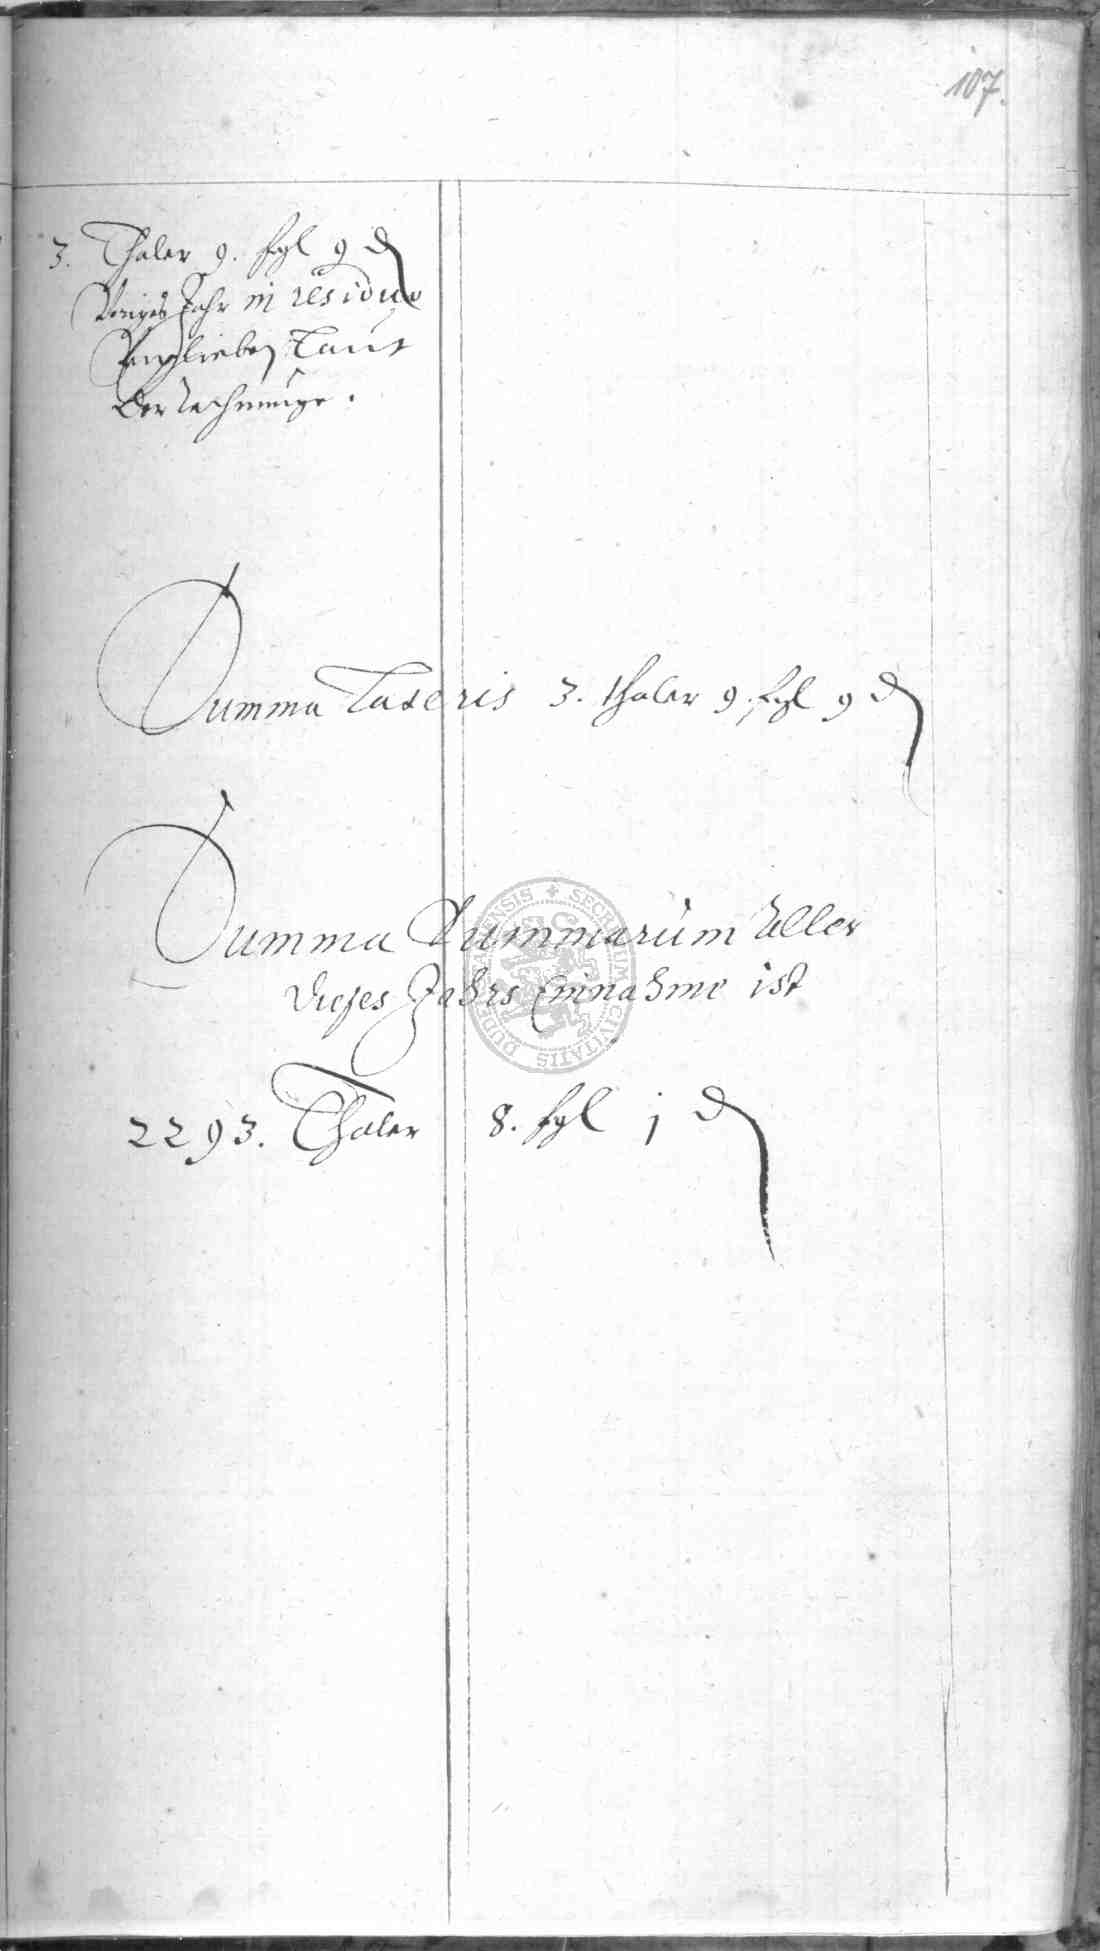 107.
3. Thaler 9. fgl 9 d
Voriges Jahr in residuo
Verplieben Laut
der rechnunge.
Summa Lateris 3. thaler 9. fgl 9 d
Summa Summarum Aller
dieses Jahrs Einnahme ist
2293. Thaler 8. fgl j d
SECRETUM CIVITATIS DUDERSTADENSIS